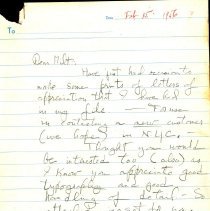 Date Feb 15 1966
To
Dear Matt,
Have just had occasion to
make some prints of letters of
appreciation that I have had
in my file — To use
in contacting a new customer
(we hope) in N.Y.C. —
Thought you would
be interested too (also) as
I know you appreciate good
typography and good
handling of detail — So